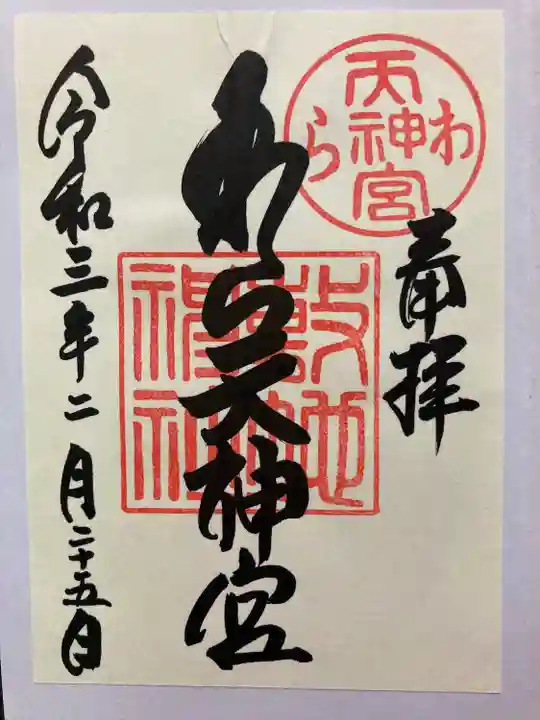 奉拝
わら天神宮
わら天神宮
敷地神社
令和三年二月二十五日